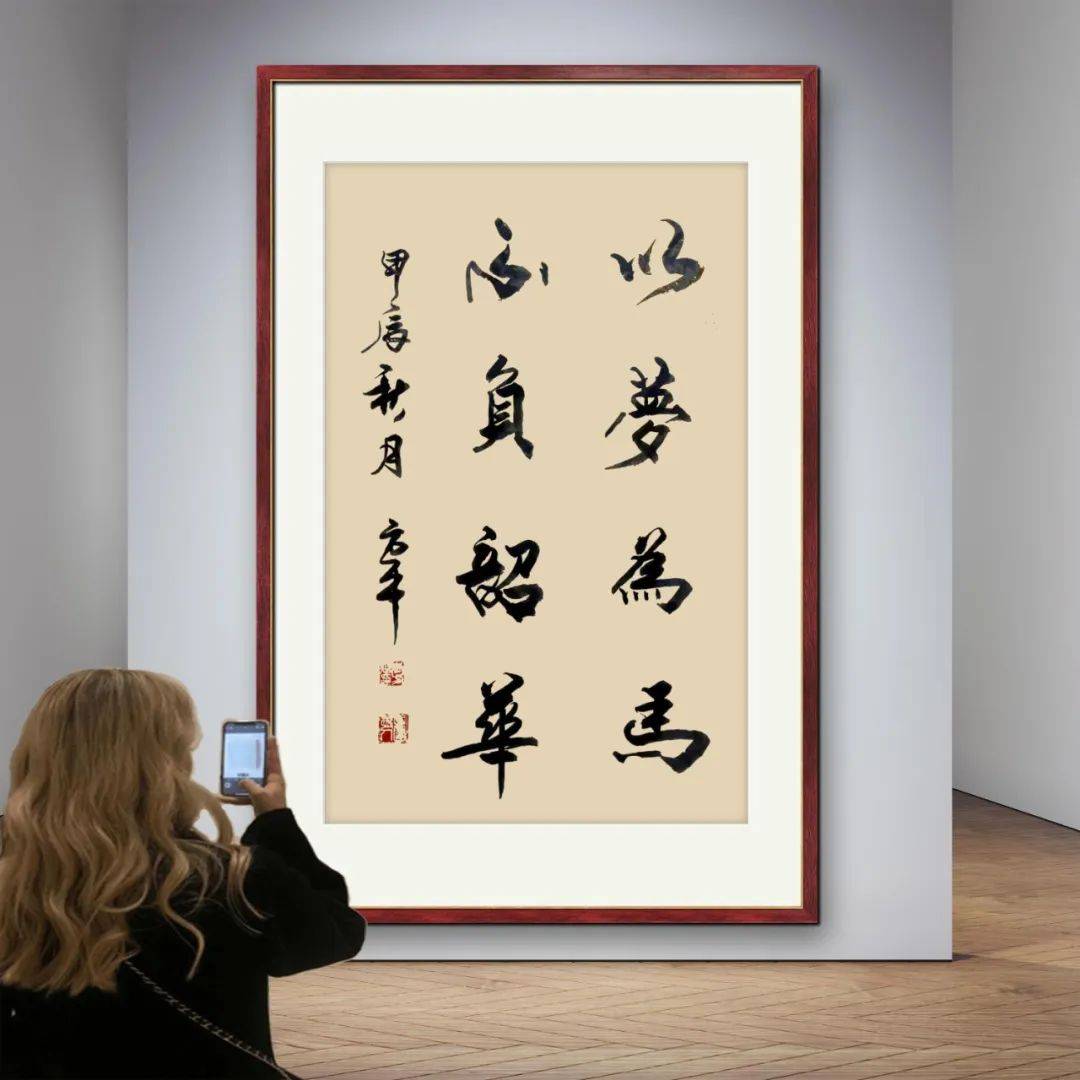 以夢為馬
不負韶華
甲辰秋月 方平